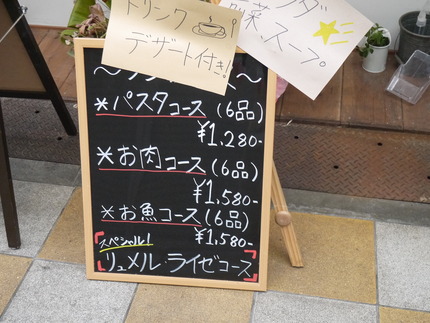 ドリンク
デザート付き!
スープ
*パスタコース (6品)
¥1,280-
*お肉コース (6品)
¥1,580-
*お魚コース (6品)
¥1,580-
スペシャル!
リュメル・ライゼコース